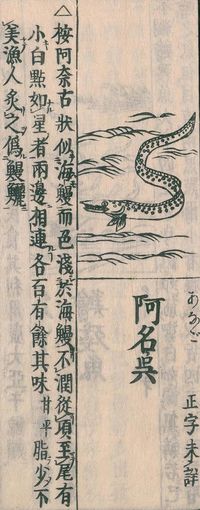 あなご
正字未詳
阿名呉
△按阿奈古狀似海鰻而色淺於海鰻不潤從項至尾有
小白點如星者兩邊相連各百有餘其味甘平脂少不
美漁人炙之偽鰻鱺